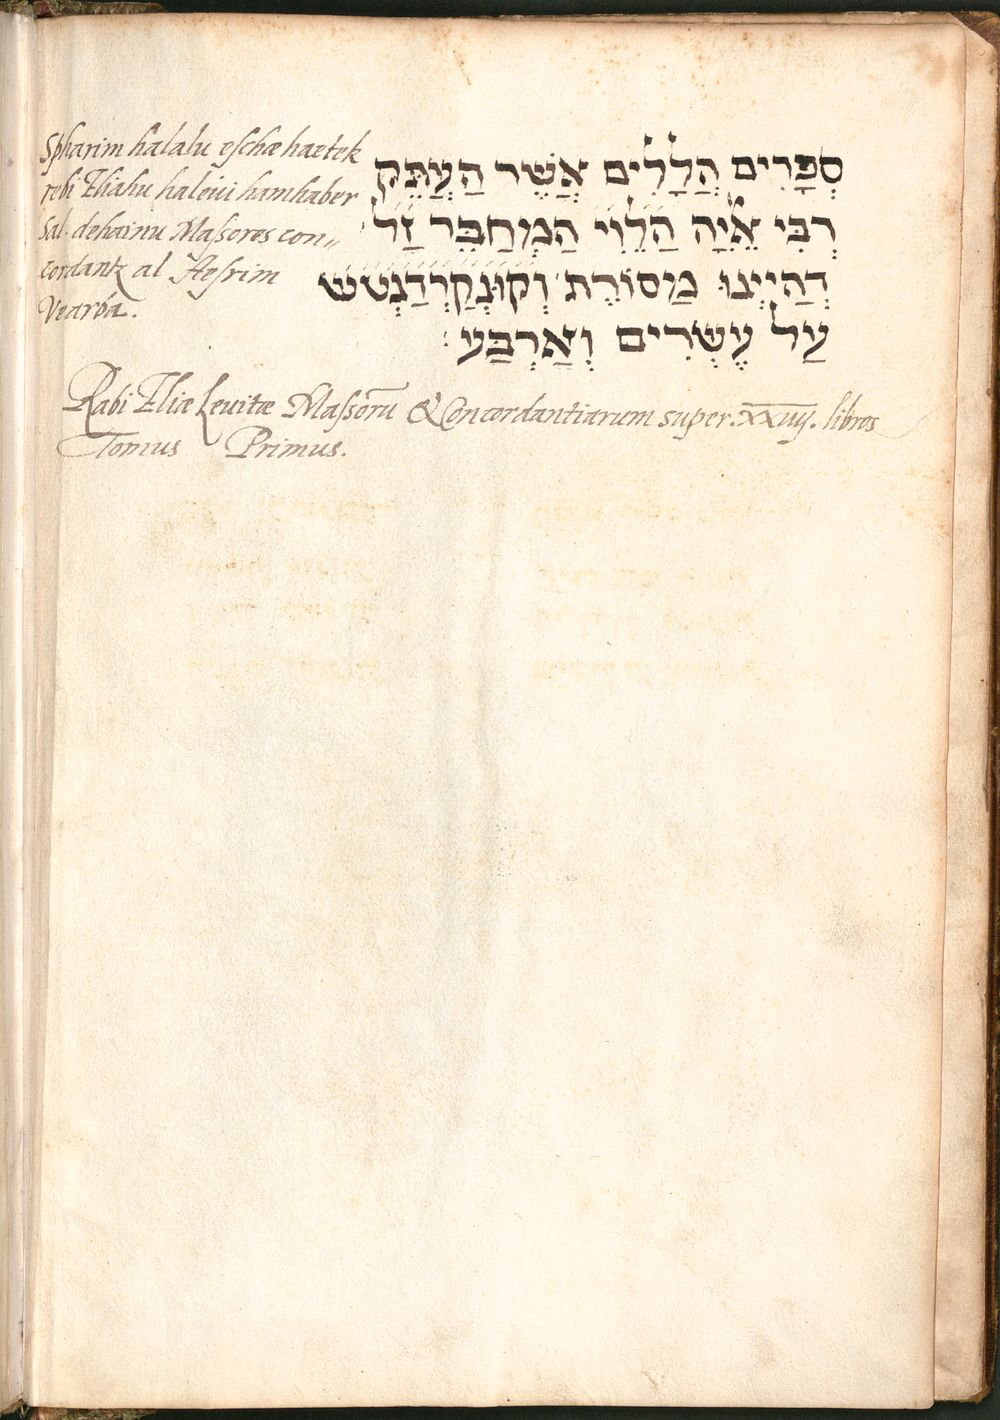 Spharim halalu eschæ haetek
rebi Eliahu haleui hamhaber
Sal. dehainu Massoros con„
cordantz al Aesrim
Vearba.
סְפָּרִים הֲלָלִים אֲשֶׁר הַעֲתֵּק
רְבִּי אֵיָּה הַלֵוִי הַמְחַבֵּר זַל
דְהַיְינוּ מַסוֹרֶת וְקוּנְקַרְדַנְטשש
עַל עֶשְׂרִים וְאַרְבַּע :
Rabi Eliæ Leuitæ Massorū & Concordantiarum super. xxiiij. libros
Tomus Primus.